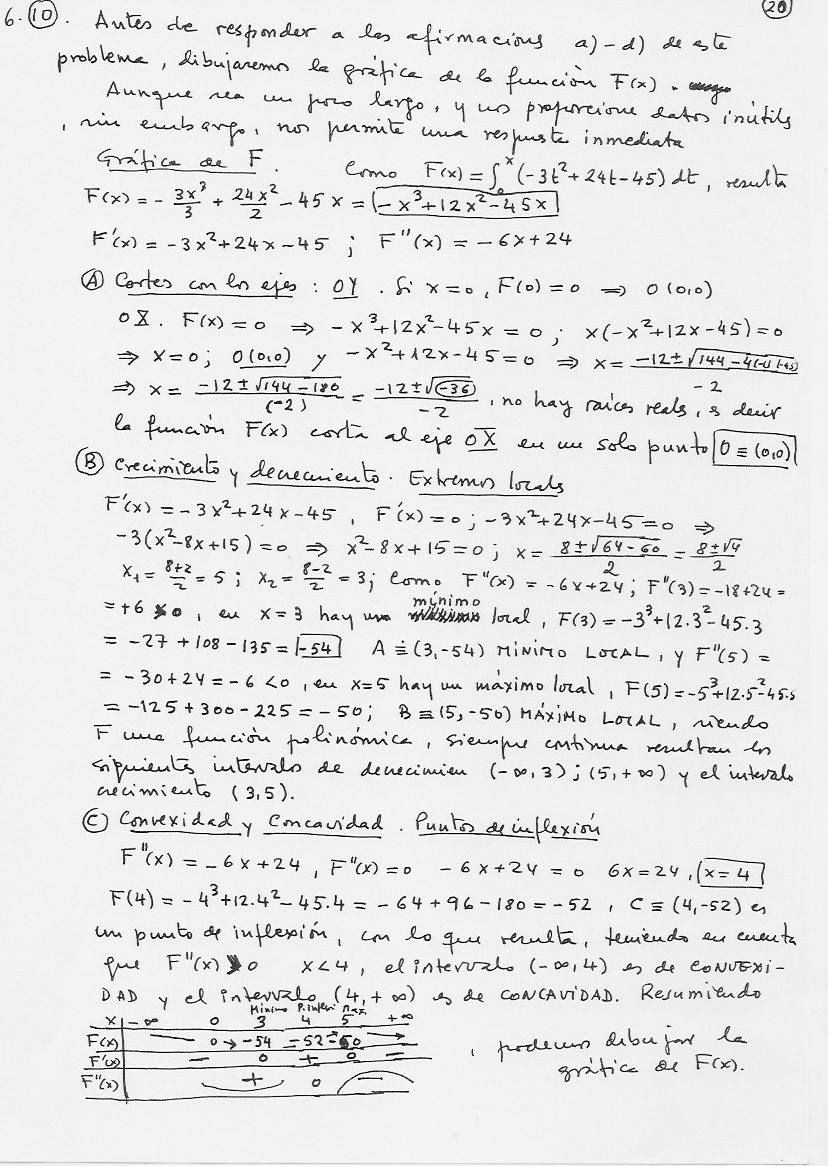 6.10. Antes de responder a las afirmacions a)-d) de este
20
problema, dibujaremos la gráfica de la función F(x).
Aunque sea un poco largo, y nos proporcione datos inútils
, sin embargo, nos permite una respuesta inmediata
Gráfica de F. Como F(x) = ∫₀ˣ (-3t²+24t-45) dt, resulta
F(x) = - 3x³/3 + 24x²/2 - 45x = -x³+12x²-45x
F'(x) = -3x²+24x-45 ; F''(x) = -6x+24
A Cortes con los ejes : OY. Si x=0, F(0)=0 ⇒ O(0,0)
OX. F(x)=0 ⇒ -x³+12x²-45x = 0 ; x(-x²+12x-45)=0
⇒ x=0; O(0,0) y -x²+12x-45=0 ⇒ x = (-12±√(144-4(-1)(-45)))/-2
⇒ x = (-12±√(144-180))/(-2) = (-12±√(-36))/-2 , no hay raíces reals, es decir
la función F(x) corta al eje OX en un solo punto O≡(0,0)
B Crecimiento y decrecimiento. Extremos locals
F'(x) = -3x²+24x-45 , F'(x)=0 ; -3x²+24x-45=0 ⇒
-3(x²-8x+15)=0 ⇒ x²-8x+15=0 ; x = (8±√(64-60))/2 = (8±√4)/2
x₁ = (8+2)/2 = 5 ; x₂ = (8-2)/2 = 3; Como F''(x) = -6x+24 ; F''(3) = -18+24 =
= +6 > 0 , en x=3 hay un mínimo local , F(3) = -3³+12.3²-45.3
= -27+108-135 = -54 A≡(3,-54) MÍNIMO LOCAL, y F''(5) =
= -30+24 = -6 <0 , en x=5 hay un máximo local , F(5) = -5³+12.5²-45.5
= -125+300-225 = -50; B≡(5,-50) MÁXIMO LOCAL, siendo
F una función polinómica, siempre continua resultan los
siguientes intervalos de decrecimien (-∞,3) ; (5,+∞) y el intervalo
crecimiento (3,5).
C Convexidad y Concavidad. Puntos de inflexión
F''(x) = -6x+24 , F''(x)=0 -6x+24 = 0 6x=24 , x=4
F(4) = -4³+12.4²-45.4 = -64+96-180 = -52 , C≡(4,-52) es
un punto de inflexión, con lo que resulta, teniendo en cuenta
que F''(x) > 0 x<4 , el intervalo (-∞,4) es de CONVEXI-
DAD y el intervalo (4,+∞) es de CONCAVIDAD. Resumiendo
Mínimo P.inflexi Max.
x -∞ 0 3 4 5 +∞
F(x) 0 → -54 -52 -50
F'(x) - 0 + 0 -
F''(x) + 0 -
, podemos dibujar la
gráfica de F(x).